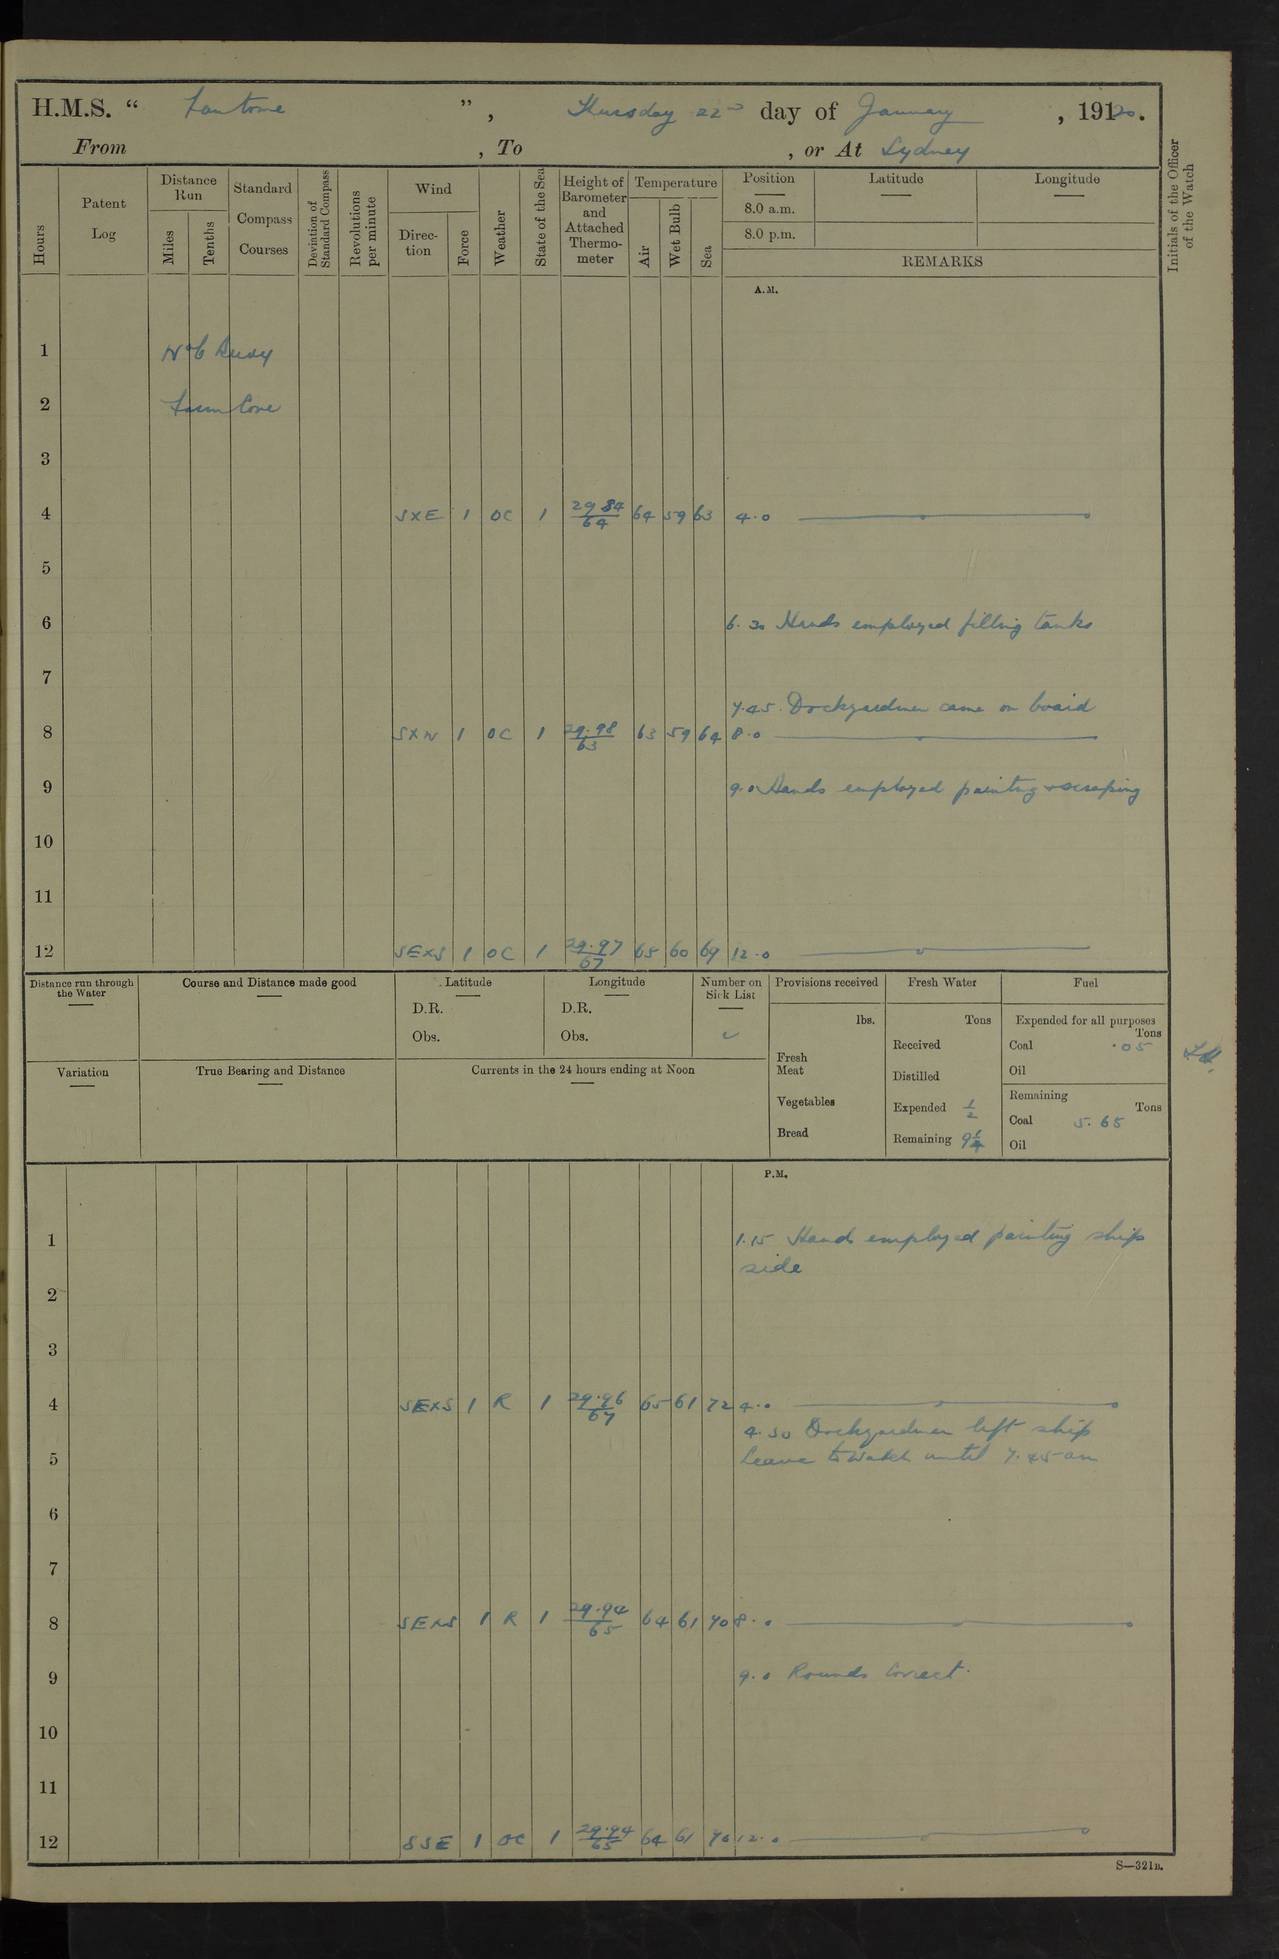 H.M.S. “ Fantome ”, Thursday 22nd day of January , 191 20.
From , To , or At Sydney
Hours
Patent Log
Distance Run
Miles
Tenths
Standard Compass Courses
Deviation of Standard Compass
Revolutions per minute
Wind
Direction
Force
Weather
State of the Sea
Height of Barometer and Attached Thermometer
Temperature
Air
Wet Bulb
Sea
Position
8.0 a.m.
8.0 p.m.
Latitude
Longitude
REMARKS
Initials of the Officer of the Watch
A.M.
1 No 6 Buoy
2 Farm Cove
3
4 SXE 1 OC 1 29.84/64 64 59 63 4.0
5
6 6.30 Hands employed filling tanks
7
7.45 Dockyardmen came on board
8 SXW 1 OC 1 29.98/63 63 59 64 8.0
9 9.0 Hands employed painting & scraping
10
11
12 SEXS 1 OC 1 29.97/67 65 60 69 12.0
Distance run through the Water
Course and Distance made good
Latitude
D.R.
Obs.
Longitude
D.R.
Obs.
Number on Sick List
Provisions received
lbs.
Fresh Meat
Vegetables
Bread
Fresh Water
Tons
Received
Distilled
Expended 1/2
Remaining
Fuel
Expended for all purposes
Tons
Coal .05
Oil
Remaining
Tons
Coal 5.65
Oil
Variation
True Bearing and Distance
Currents in the 24 hours ending at Noon
P.M.
1 1.15 Hands employed painting ships
side
2
3
4 SEXS 1 R 1 29.96/67 65 61 72 4.0
4.30 Dockyardmen left ship
5 Leave to Watch until 7.45 am
6
7
8 SEXS 1 R 1 29.94/65 64 61 70 8.0
9 9.0 Rounds Correct.
10
11
12 SSE 1 OC 1 29.94/65 64 61 70 12.0
S—321B.